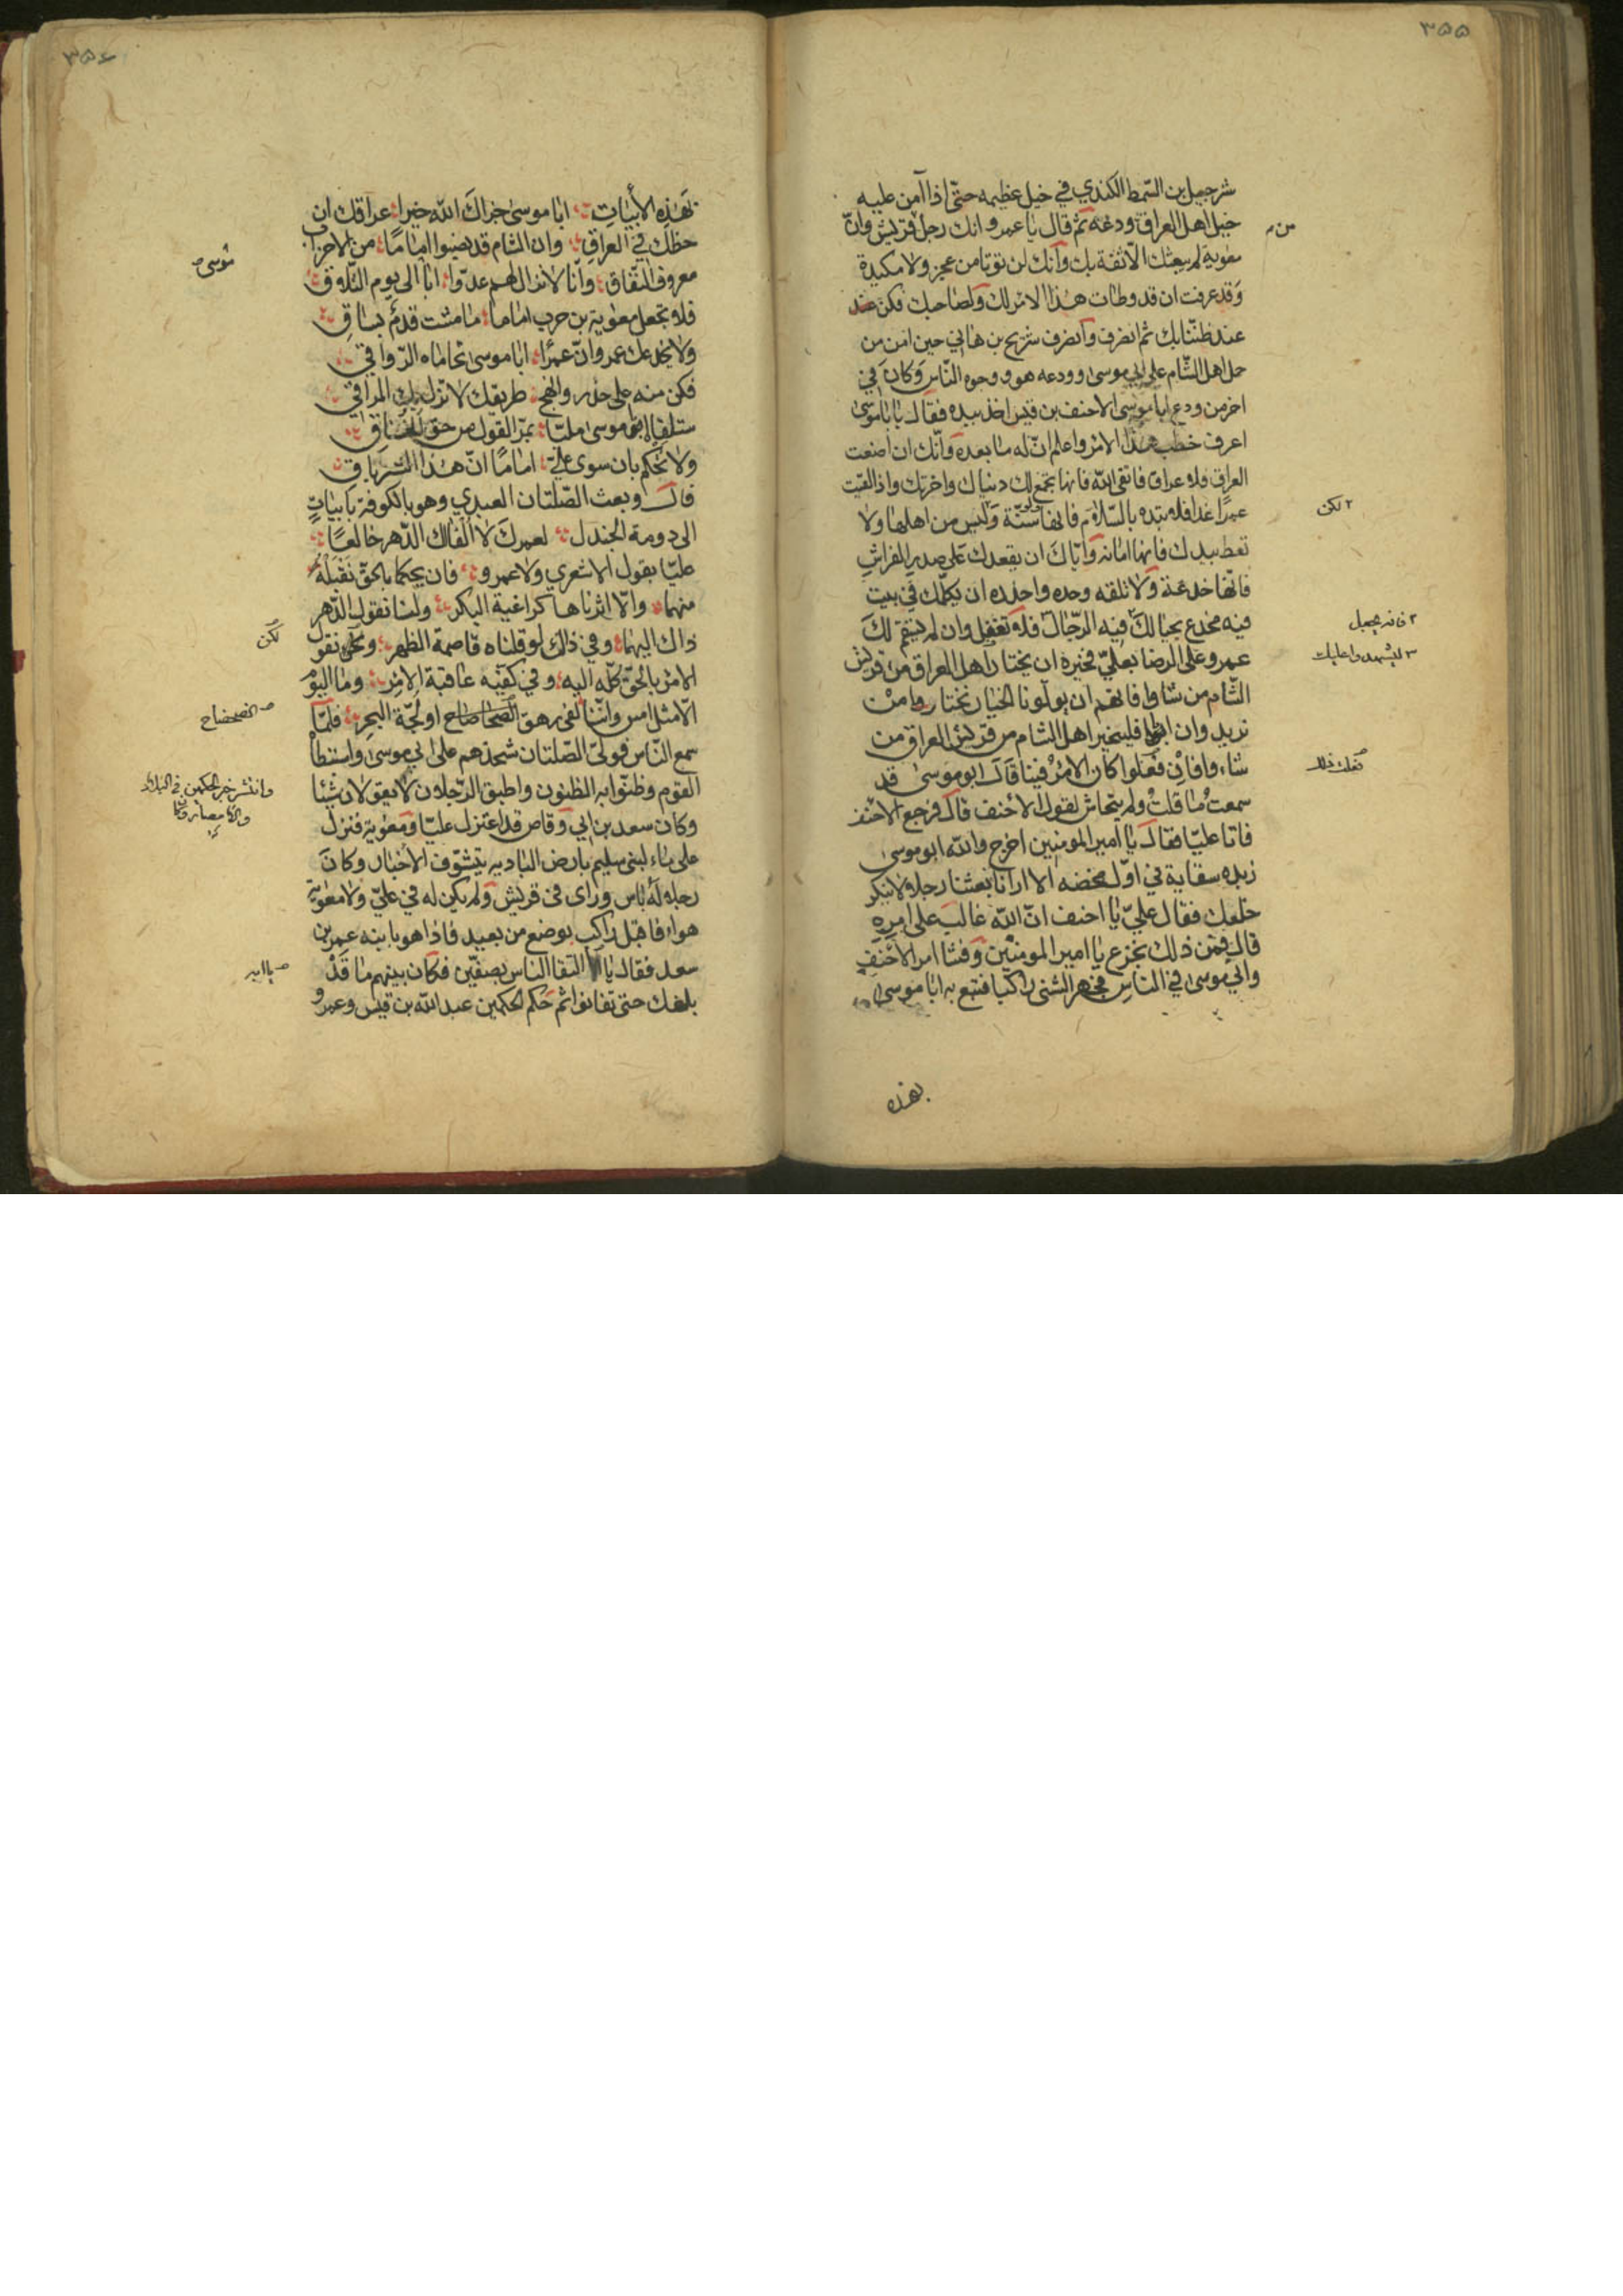 ٣٥٥
شرحبيل بن السّمط الكندي في خيل عظيمه حتّى اذا آمن عليه
خيل اهل العراق ودعه ثم قال يا عمرو انك رجل قريش وانّ
معوية لم يبعثك الّا ثقة بك وانك لن توتا من عجز ولا مكيدة
وقد عرفت ان قد وطات هذا الامر لك ولصاحبك فكن عند
عند ظننا بك ثم انصرف وانصرف شريح بن هاني حين امن من
خيل اهل الشّام على ابي موسى وودعه هو ووجوه النّاس وكان في
اخر من ودع ابا موسى الاحنف بن قيس اخذ بيده فقال يا با موسى
اعرف خطب هذا الامر واعلم انّ له ما بعده وانّك ان اضعت
العراق فلا عراق فاتقى الله فانها تجمع لك دنياك واخرتك واذا لقيت
عمرًا غدا فلا تبتده بالسّلام فانها سنّة وليس من اهلها ولا
تعط بيدك فانها امانه وايّاك ان يقعدك على صدر الفراش
فانّها خدعة ولا تلقه وحده واحذره ان يكلّمك في بيت
فيه مخدع يخبالك فيه الرّجال فلا تغفل وان لم يستقم لك
عمرو على الرضا بعليّ فخيره ان يختار اهل العراق من قريش
الشّام من شاوا فانهم ان يولونا الخيار نختار وا من
نريد وان ابوا فليتخير اهل الشام من قريش العراق من
شاء وا فان فعلوا كان الامر فينا قال ابو موسى قد
سمعت ما قلت ولم يتحاش لقول الاحنف قال فرجع الاحنف
فاتا عليّا فقال يا امير المومنين اخرج والله ابو موسى
زبده سقايه في اوّل مخضه الا ارانا بعثنا رجلا لا ينكر
خلعك فقال عليّ يا احنف انّ الله غالب على امره
قال فمن ذلك نجزع يا امير المومنين وفشا امر الاحنف
وابي موسى في الناس فجهز الشنى راكبا فتبع به ابا موسى
بهذه
٢ لكن
٣ ليشهدوا عليك
٣٥٦
بهذه الأبيات ابا موسى جزاك الله خيرا عراقك ان
حظك في العراق وان الشام قد نصبوا امامًا من الاحزاب
معروف النّفاق وانّا لا نزال لهم عدوّا ابا الى يوم التّلاق
فلا تجعل معوية بن حرب اماما ما مشت قدم بساق
ولا يخدعك عمرو وانّ عمرًا ابا موسى تحاماه الرّواقي
فكن منه على حذر وانهج طريقك لا تزل بك المراقي
ستلقاه ابا موسى مليّا بمرّ القول من حق الخناق
ولا تحكم بان سوى عليّ امامًا انّ هذا الشر باق
قال وبعث الصّلتان العبدي وهو بالكوفة بابيات
الى دومة الجندل لعمرك لا الفاك الدّهر خالعًا
عليّا بقول الاشعري ولا عمرو فان يحكما بالحقّ نقبله
منهما والّا اثرناها كراغية البكر ولسنا نقول الدّهر
ذاك اليهما وفي ذلك لو قلناه قاصمة الظهر ونحن نقول
الامر بالحقّ كلّه اليه وفي كفّيه عاقبة الامر وما اليوم
الّا مثل امس وانّنا لفى رهق الضحاضاح او لجّة البحر فلمّا
سمع النّاس قول الصّلتان شحذهم على ابي موسى واستبطا
القوم وظنّوا به الظنون واطبق الرّجلان لا يقولان شيئا
وكان سعد بن ابي وقاص قد اعتزل عليّا ومعوية فنزل
على ماء لبنى سليم بارض البادية يتشوّف الاخبار وكان
رجلا له باس وراى في قريش ولم يكن له في عليّ ولا معوية
هواء فاقبل راكب يوضع من بعيد فاذا هو بابنه عمر بن
سعد فقال يا التقا الناس بصفّين فكان بينهم ما قد
بلغك حتى تفانوا ثم حكم الحكمين عبد الله بن قيس وعمرو
موسى
لكن
الضحضاح
وانتشر خبر الحكمين في البلاد
يا ابه